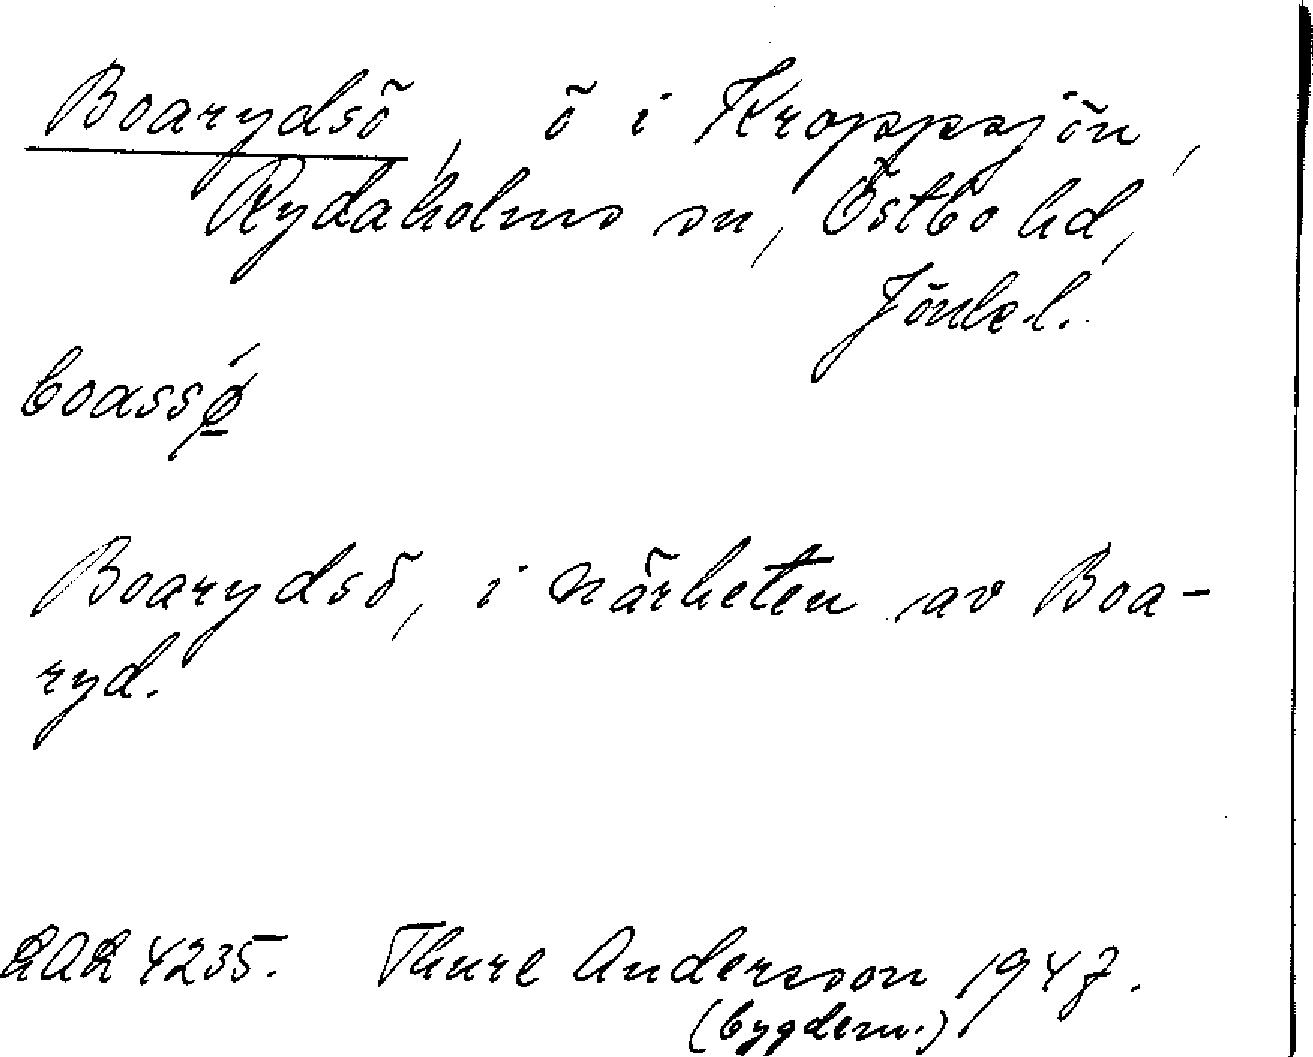 Boarydsö, ö i Kroppsjön,
Rydaholms sn, Östbo hd,
Jönk.l.
boassǿ̱
Boarydsö, i närheten av Boa-
ryd.
LAL 4235. Thure Andersson 1947.
(bygdem.)